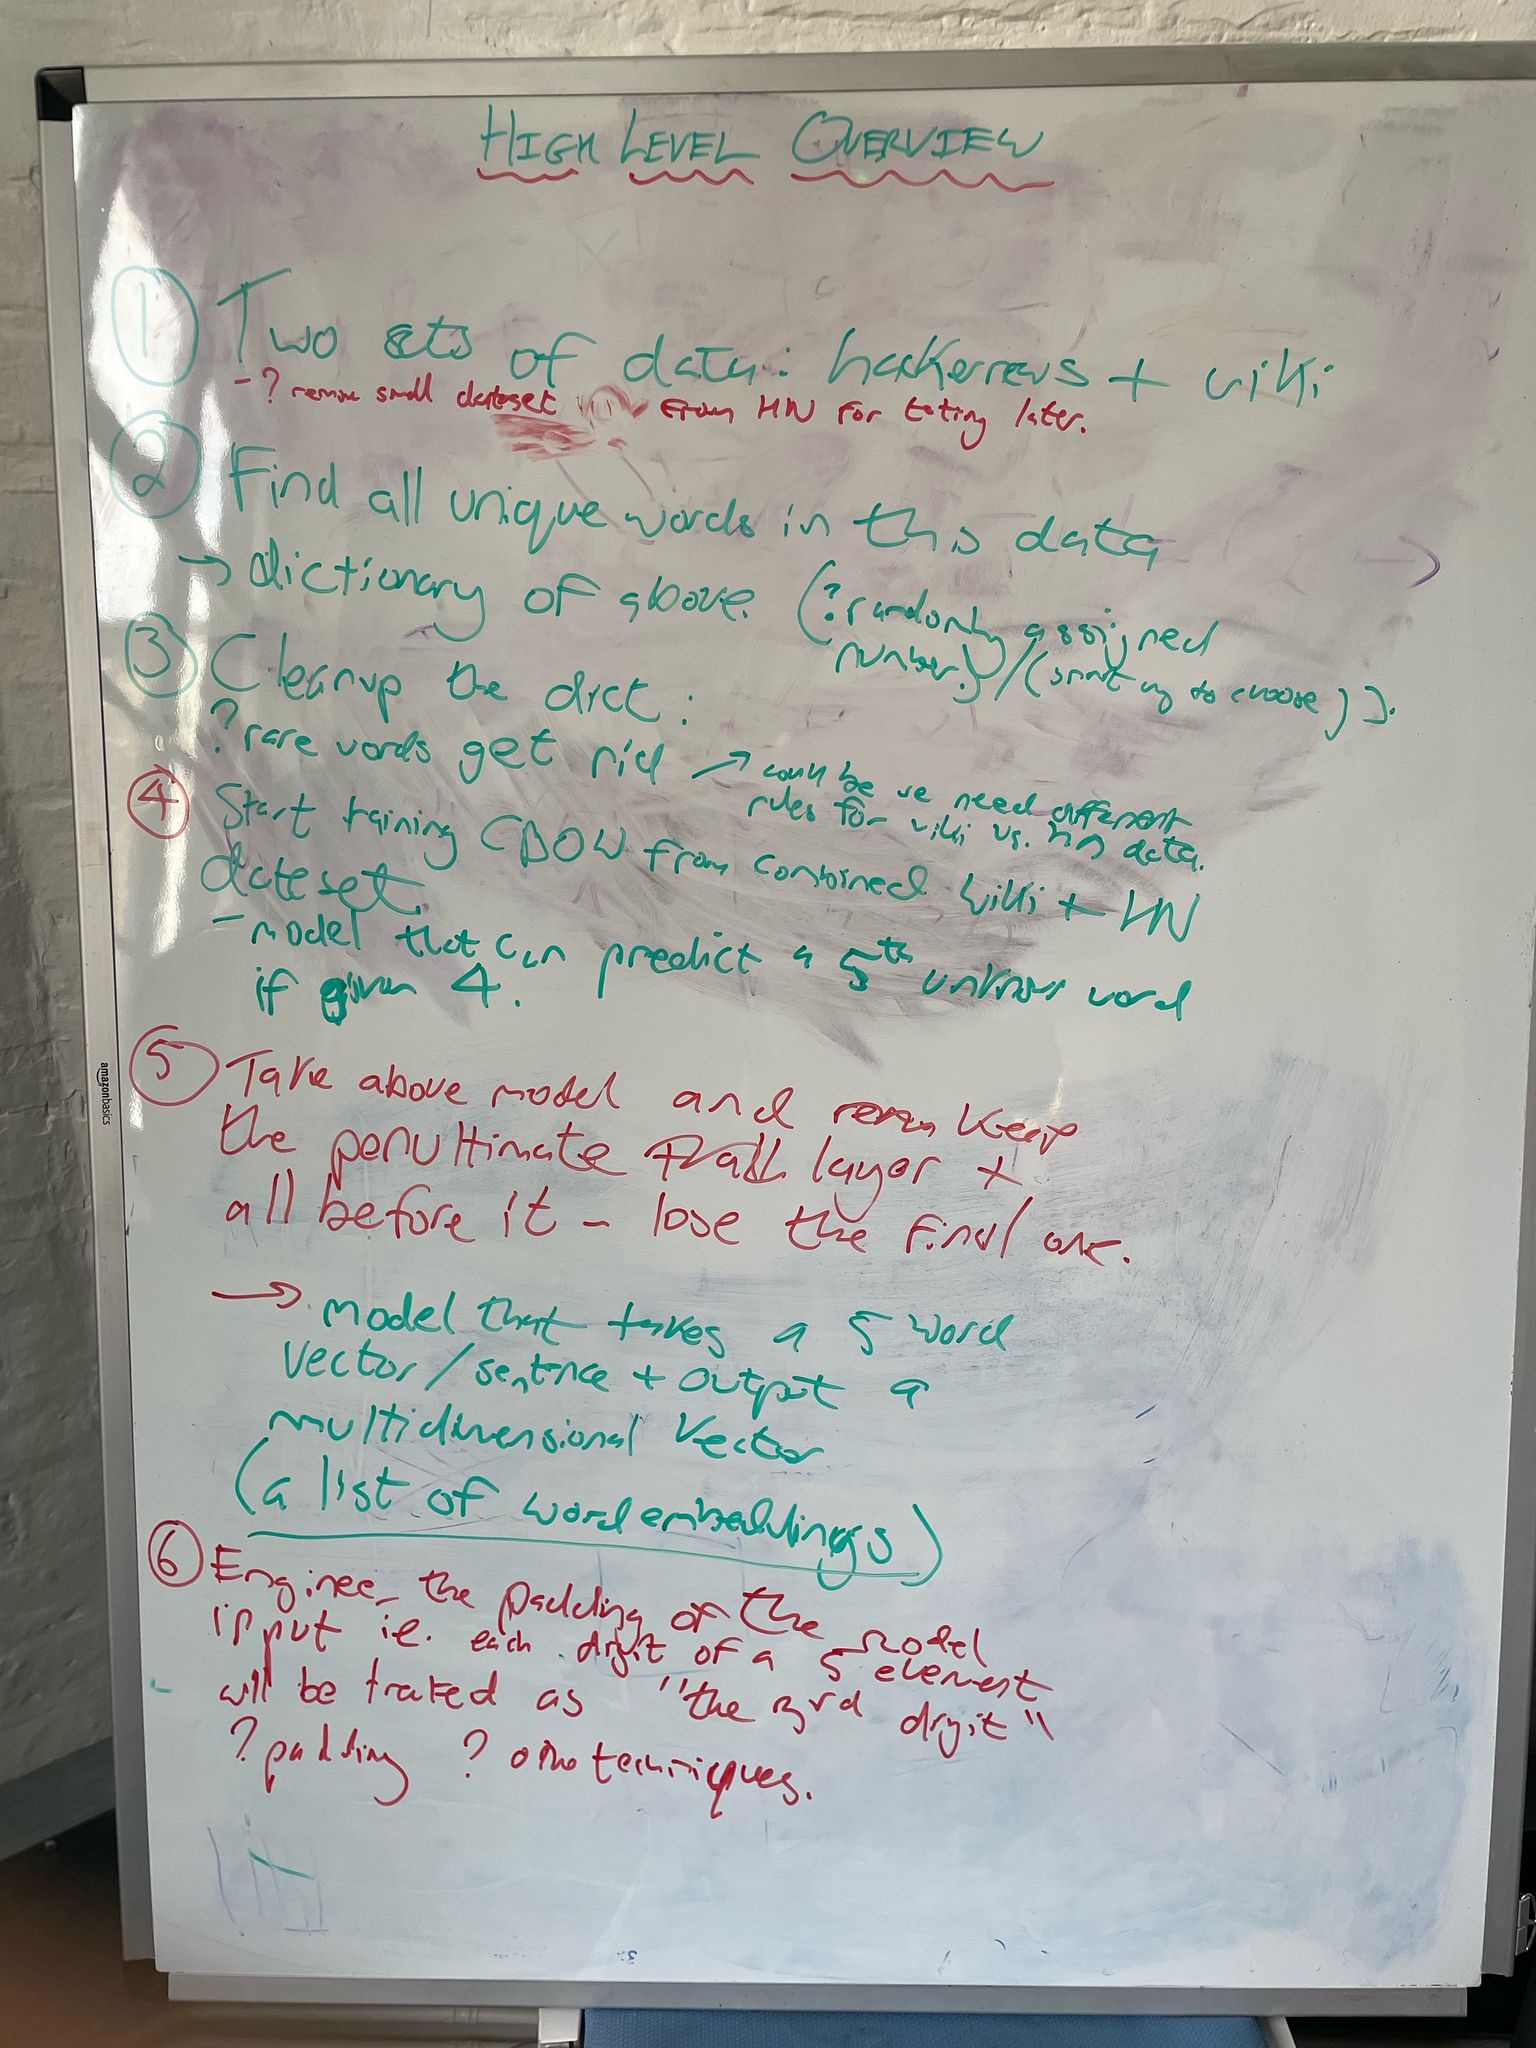 HIGH LEVEL OVERVIEW
1 Two sets of data: hackernews + wiki
- ? remove small dataset from HN for testing later.
2 Find all unique words in this data
→ dictionary of above. (? randomly assigned
number) / (smart way to choose)).
3 Cleanup the dict:
? rare words get rid → could be we need different
rules for wiki vs. hn data.
4 Start training CBOW from combined wiki + HN
dateset
- model that can predict a 5th unknown word
if given 4.
5 Take above model and keep
the penultimate layer +
all before it - lose the final one.
→ model that takes a 5 word
vector/sentence + output a
multidimensional vector
(a list of word embeddings)
6 Engineer the padding of the model
input ie. each digit of a 5 element
will be trated as "the 3rd digit"
? padding ? other techniques.
amazonbasics